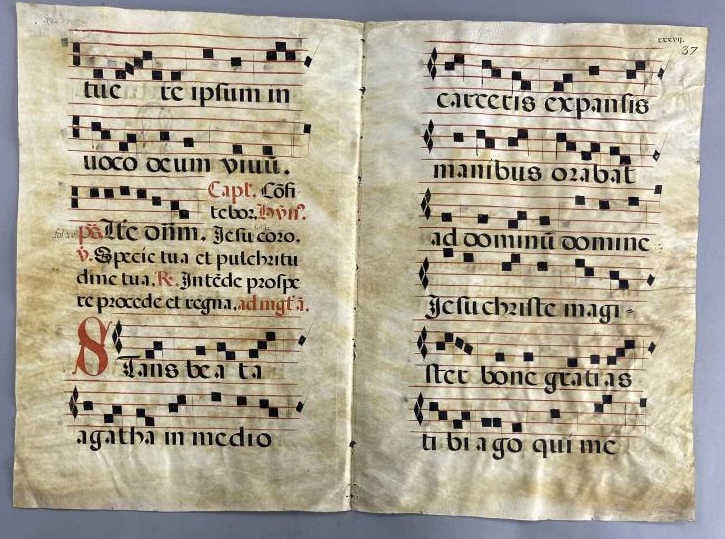 tue te ipsum in
uoco deum viuū.
Capl. Cōfi
tebor. Hyn̄.
ps̄ Ite dn̄m. Jesu coro.
v. Specie tua et pulchritu
dine tua. R. Intēde prospe
re procede et regna. ad mgt̄ ā.
Stans be a ta
agatha in medio
xxxvij.
37
carceris expansis
manibus orabat
ad dominū domine
Jesu christe magi-
ster bone gratias
ti bi a go qui me